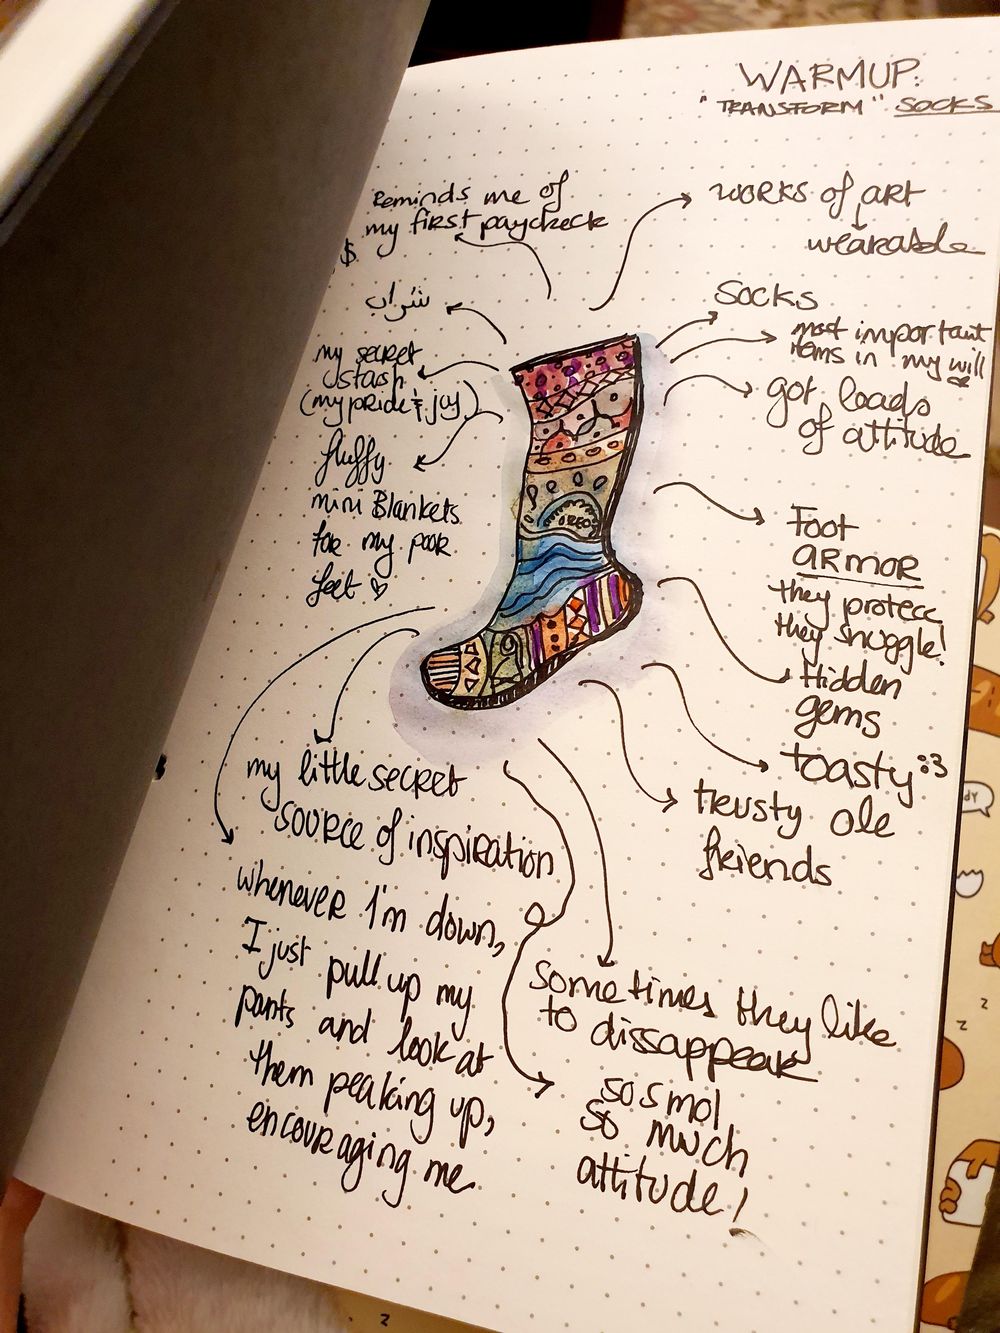 WARMUP:
"TRANSFORM" SOCKS
Reminds me of
my first paycheck
$
works of art
wearable
شراب
socks
most important
items in my will
my secret
stash
(my pride & joy)
got loads
of attitude
fluffy
mini Blankets
for my poor
feet
Foot
ARMOR
they protecc
they snuggle!
Hidden
gems
toasty :3
trusty ole
friends
OREO
my little secret
source of inspiration
whenever I'm down,
I just pull up my
pants and look at
them peaking up,
encouraging me
sometimes they like
to dissappear
so smol
so much
attitude!
z
z
z